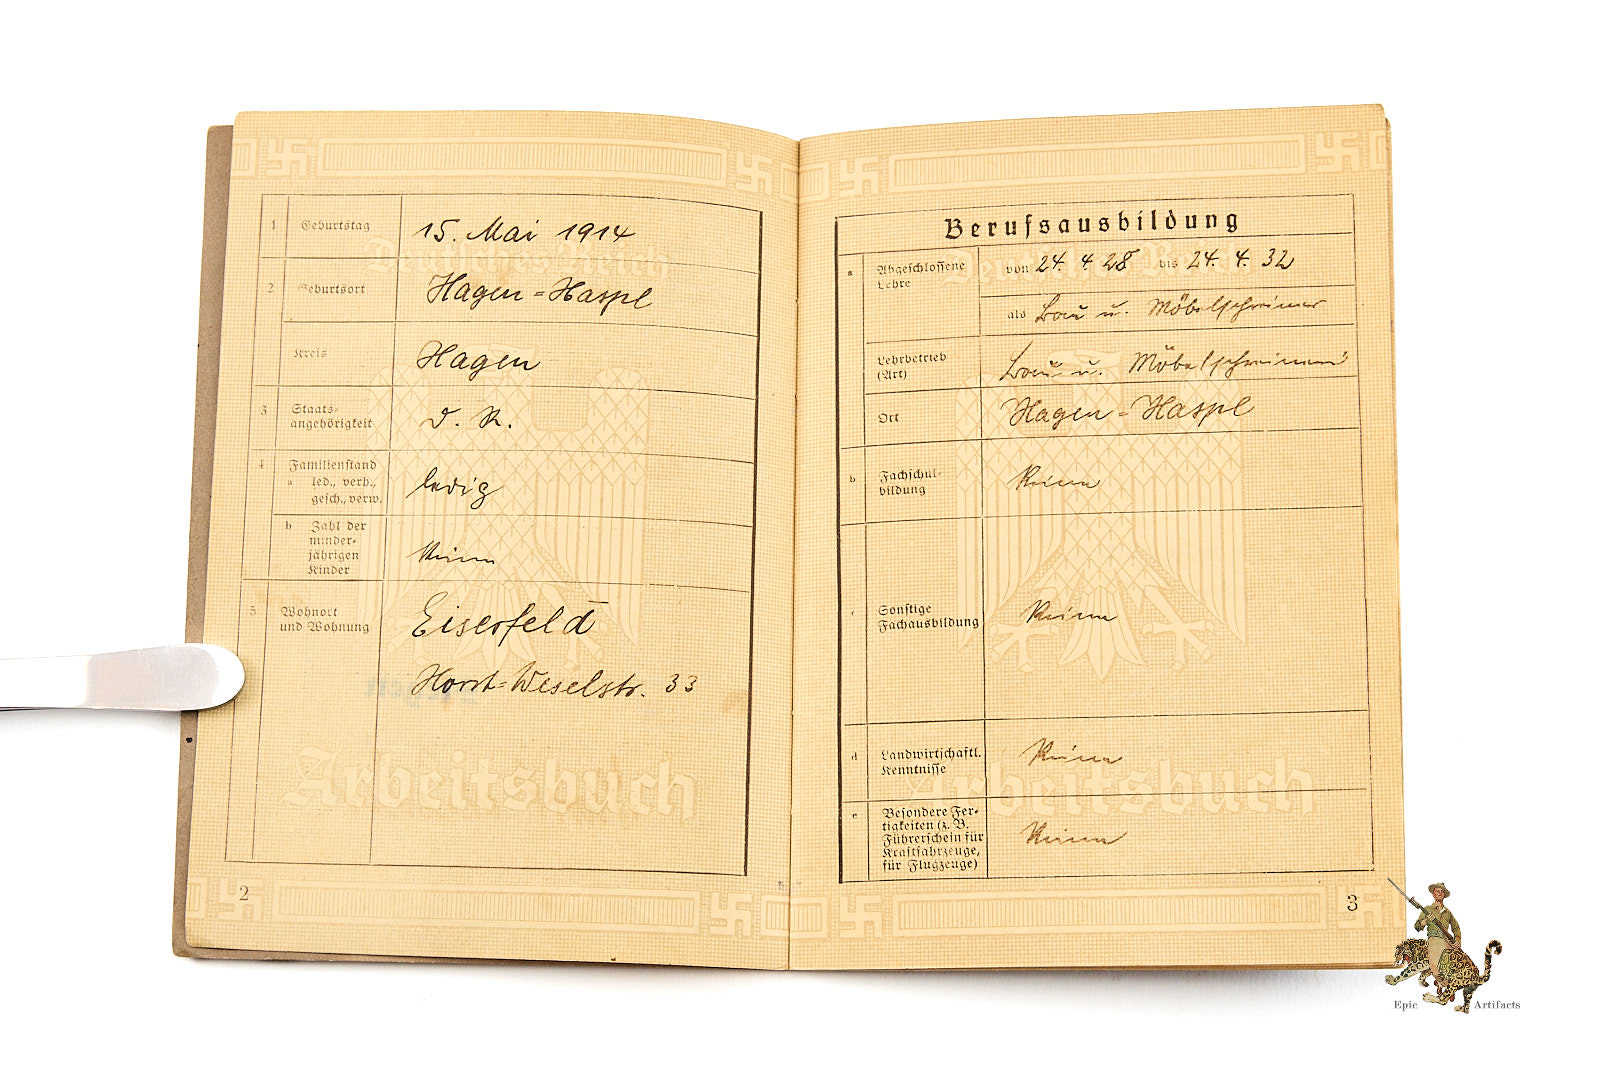 1 Geburtstag 15. Mai 1914
Deutsches Reich
2 Geburtsort Hagen-Haspe
Kreis Hagen
3 Staats-
angehörigkeit D. R.
4 Familienstand
a led., verh.,
gesch., verw. ledig
b Zahl der
minder-
jährigen
Kinder
keine
5 Wohnort
und Wohnung
Eiserfeld
Horst-Weselstr. 33
Arbeitsbuch
2
Berufsausbildung
a Abgeschlossene
Lehre
von 24. 4. 28 bis 24. 4. 32
Deutsches Reich
als Bau u. Möbelschreiner
Lehrbetrieb
(Art)
Bau u. Möbelschreinerei
Ort Hagen-Haspe
b Fachschul-
bildung
Keine
c Sonstige
Fachausbildung
Keine
d Landwirtschaftl.
Kenntnisse
Keine
Arbeitsbuch
e Besondere Fer-
tigkeiten (z. B.
Führerschein für
Kraftfahrzeuge,
für Flugzeuge)
Keine
3
Epic Artifacts